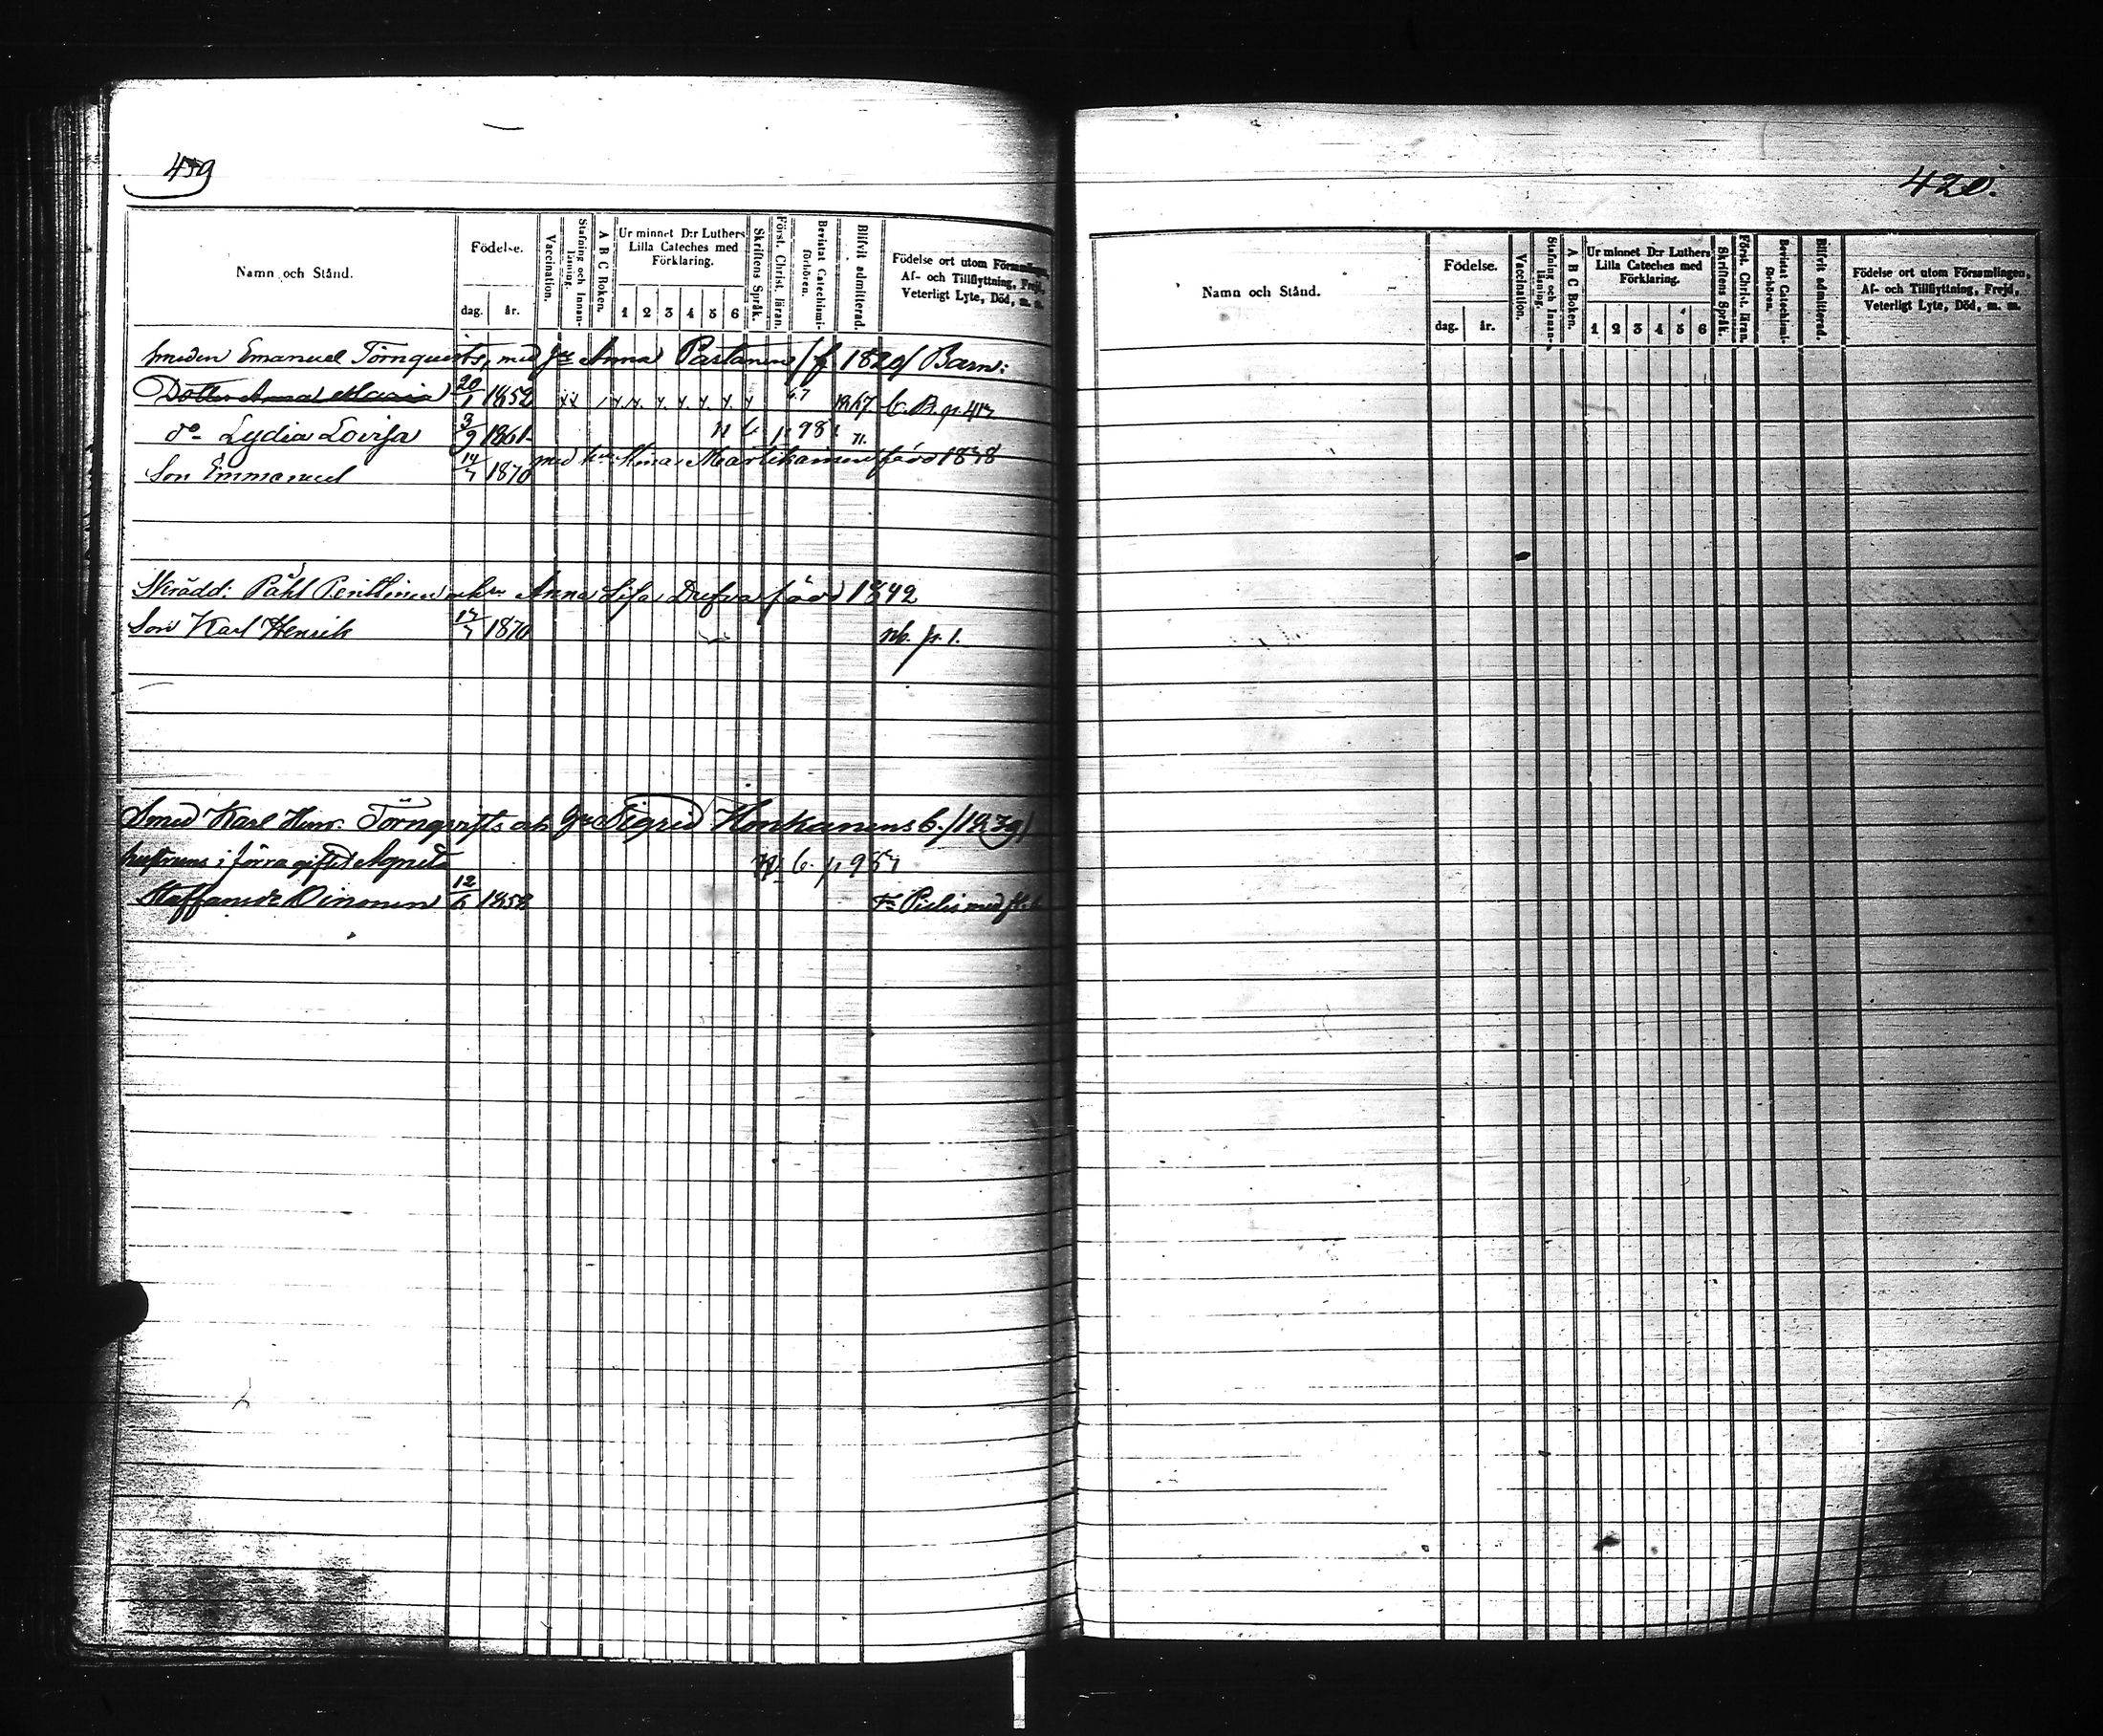 459
Namn och Stånd.
Födelse.
dag. år.
Vaccination.
Stafning och Innan-
läsning.
A B C Boken.
Ur minnet D:r Luthers
Lilla Cateches med
Förklaring.
1 2 3 4 5 6
Skriftens Språk.
Först. Christ. läran.
Bevistat Catechismi-
förhören.
Blifvit admitterad.
Födelse ort utom Församlingen,
Af- och Tillflyttning, Frejd,
Veterligt Lyte, Död, m. m.
Smeden Emanuel Törnquists, med Anna Partanen / f 1820 / Barn:
Dotter Anna Maria 20/1 1852 67 1867 C. B. p. 417
do Lydia Lovisa 3/9 1861 71.
med Stina Martikainen född 1838
Son Emmanuel 14/7 1870
Skrädd: Påhl Penttinen Anna Lisa Dufva född 1842
Son Karl Henrik 17/7 1870 nb. p. 1.
Smed Karl Henr. Törnqvists och Sigrid Honkanens b. / 1839 /
hustruns i förra giftet Agneta
Staffansdr Oinonen 12/6 1858
420.
Namn och Stånd.
Födelse.
dag. år.
Vaccination.
Stafning och Innan-
läsning.
A B C Boken.
Ur minnet D:r Luthers
Lilla Cateches med
Förklaring.
1 2 3 4 5 6
Skriftens Språk.
Först. Christ. läran.
Bevistat Catechismi-
förhören.
Blifvit admitterad.
Födelse ort utom Församlingen,
Af- och Tillflyttning, Frejd,
Veterligt Lyte, Död, m. m.